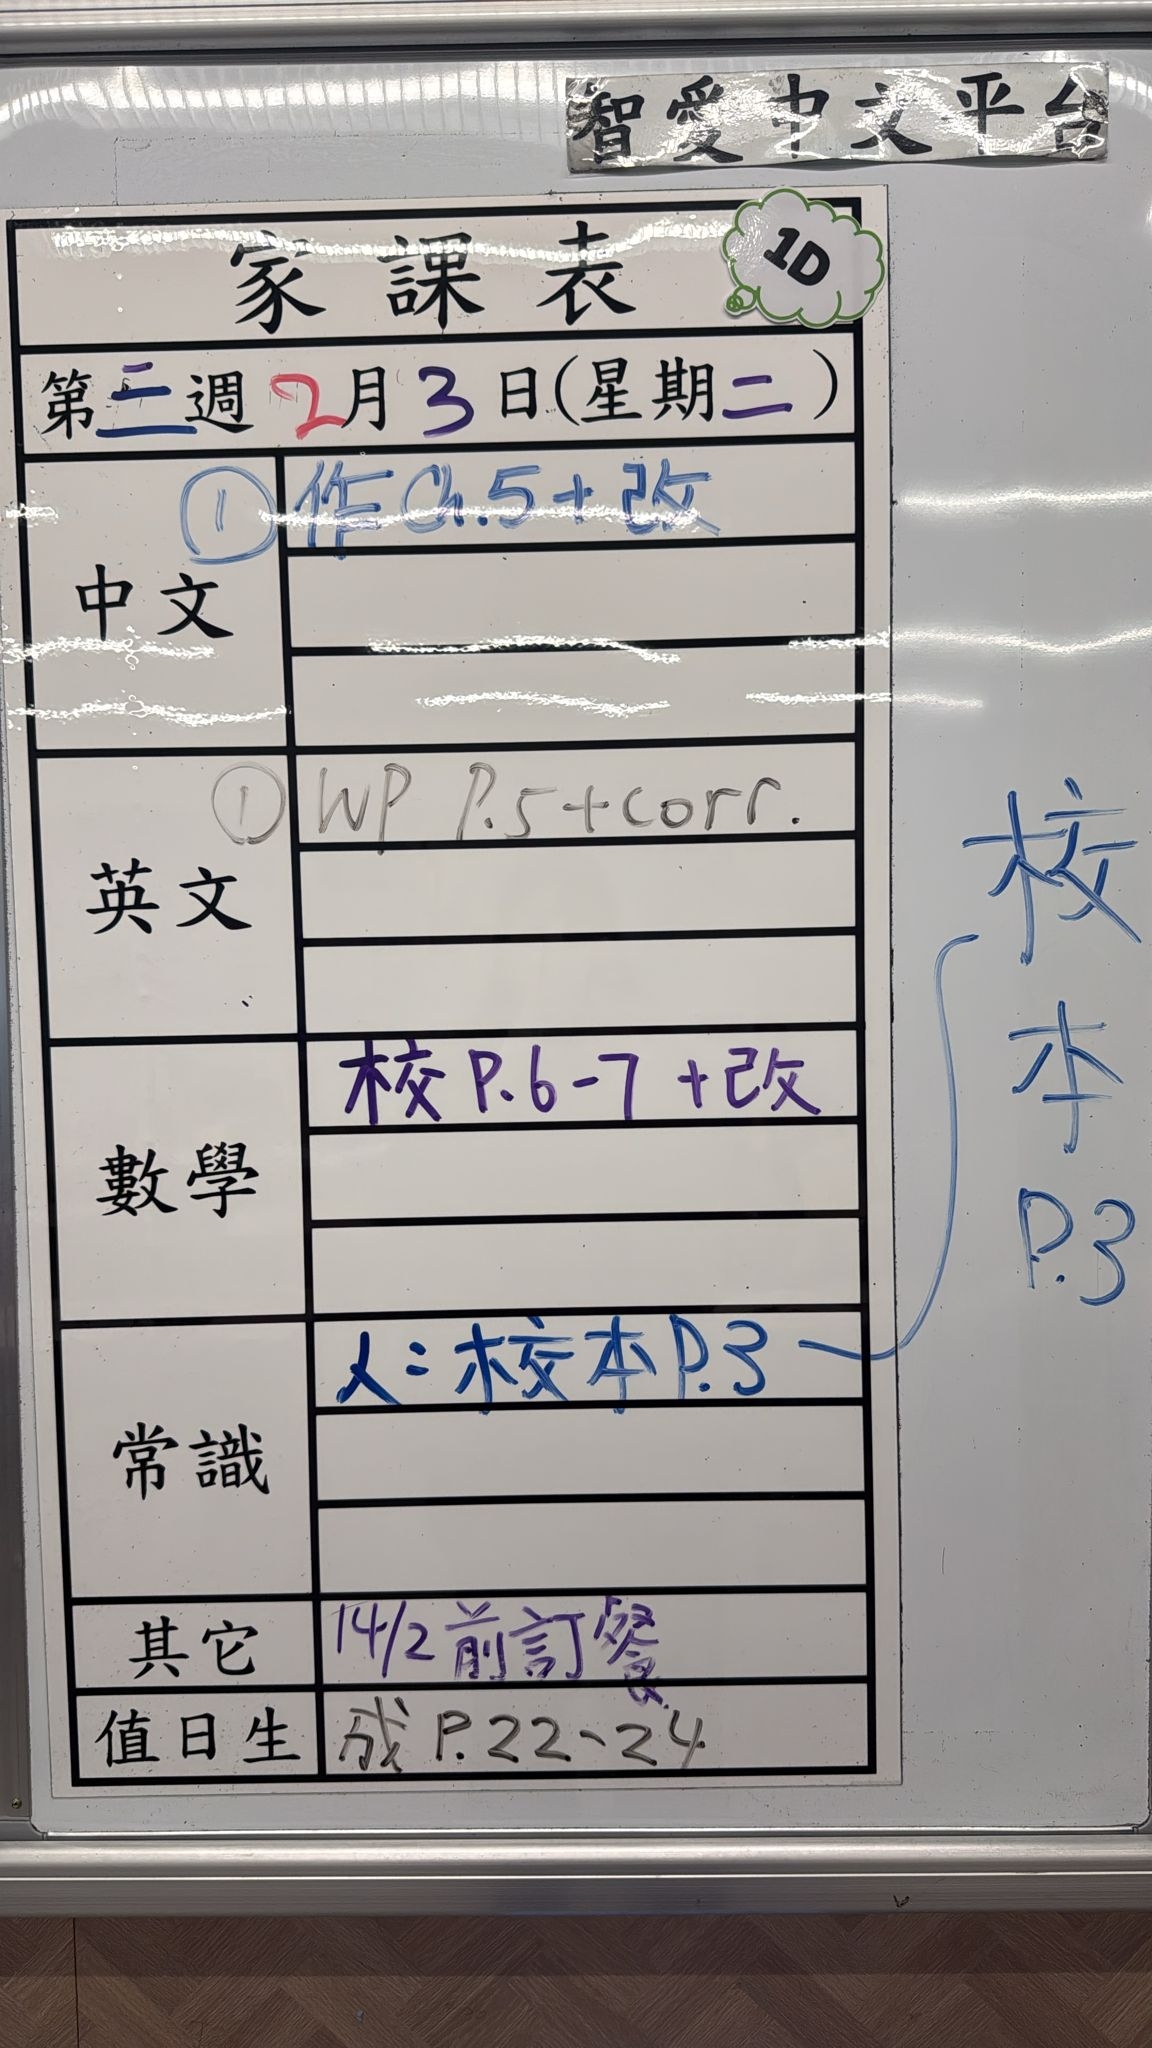 智愛中文平台
家課表
1D
第三週 2月3日(星期二)
中文
① 作 Ch.5+改
英文
① WP P.5+corr.
數學
校 P.6-7 +改
常識
人:校本 P.3
校本 P.3
其它
14/2前訂餐
值日生
成 P.22-24